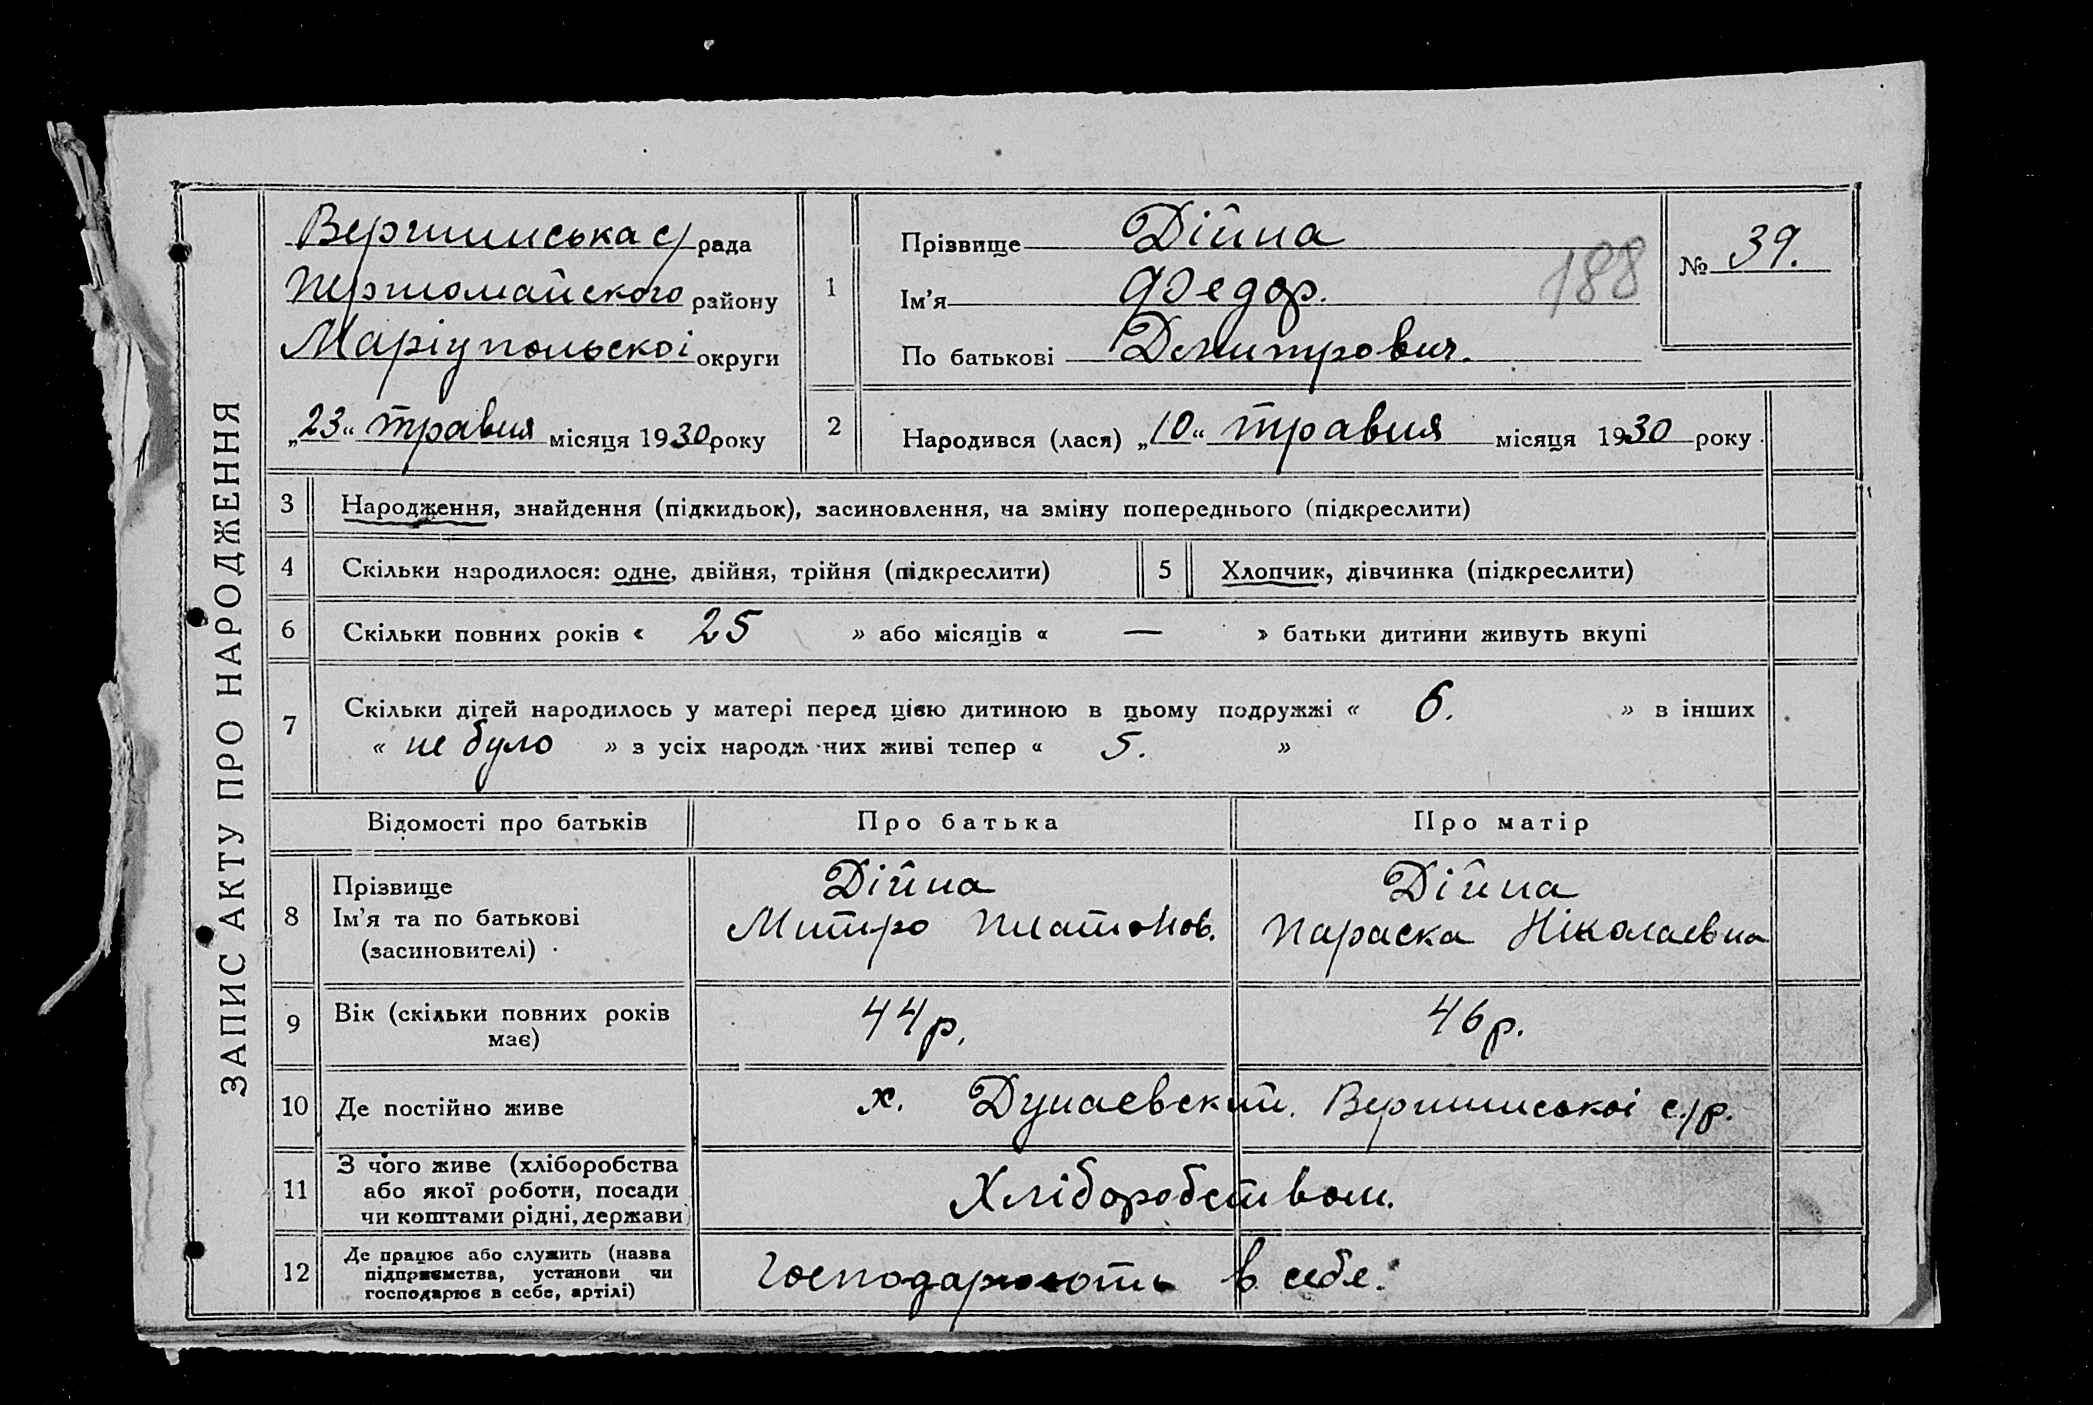 ЗАПИС АКТУ ПРО НАРОДЖЕННЯ
Вершинська с/рада
Першомайского району
Маріупольскоі округи
„23“ травня місяця 1930 року
1
Прізвище Дійна
Ім'я Федор.
По батькові Демитрович.
188
№ 39.
2
Народився (лася) „10“ травня місяця 1930 року
3 Народження, знайдення (підкидьок), засиновлення, на зміну попереднього (підкреслити)
4 Скільки народилося: одне, двійня, трійня (підкреслити)
5 Хлопчик, дівчинка (підкреслити)
6 Скільки повних років « 25 » або місяців « — » батьки дитини живуть вкупі
7 Скільки дітей народилось у матері перед цією дитиною в цьому подружжі « 6. » в інших
« не було » з усіх народж них живі тепер « 5. »
Відомості про батьків Про батька Про матір
8
Прізвище
Ім'я та по батькові
(засиновителі)
Дійна
Митро Платонов.
Дійна
Параска Ніколаевна
9
Вік (скільки повних років
має)
44 р.
46 р.
10 Де постійно живе х. Дунаевский. Вершинськоі с/р.
11
З чого живе (хліборобства
або якої роботи, посади
чи коштами рідні, держави)
Хліборобством.
12
Де працює або служить (назва
підприємства, установи чи
господарює в себе, артілі)
Господарюють в себе.